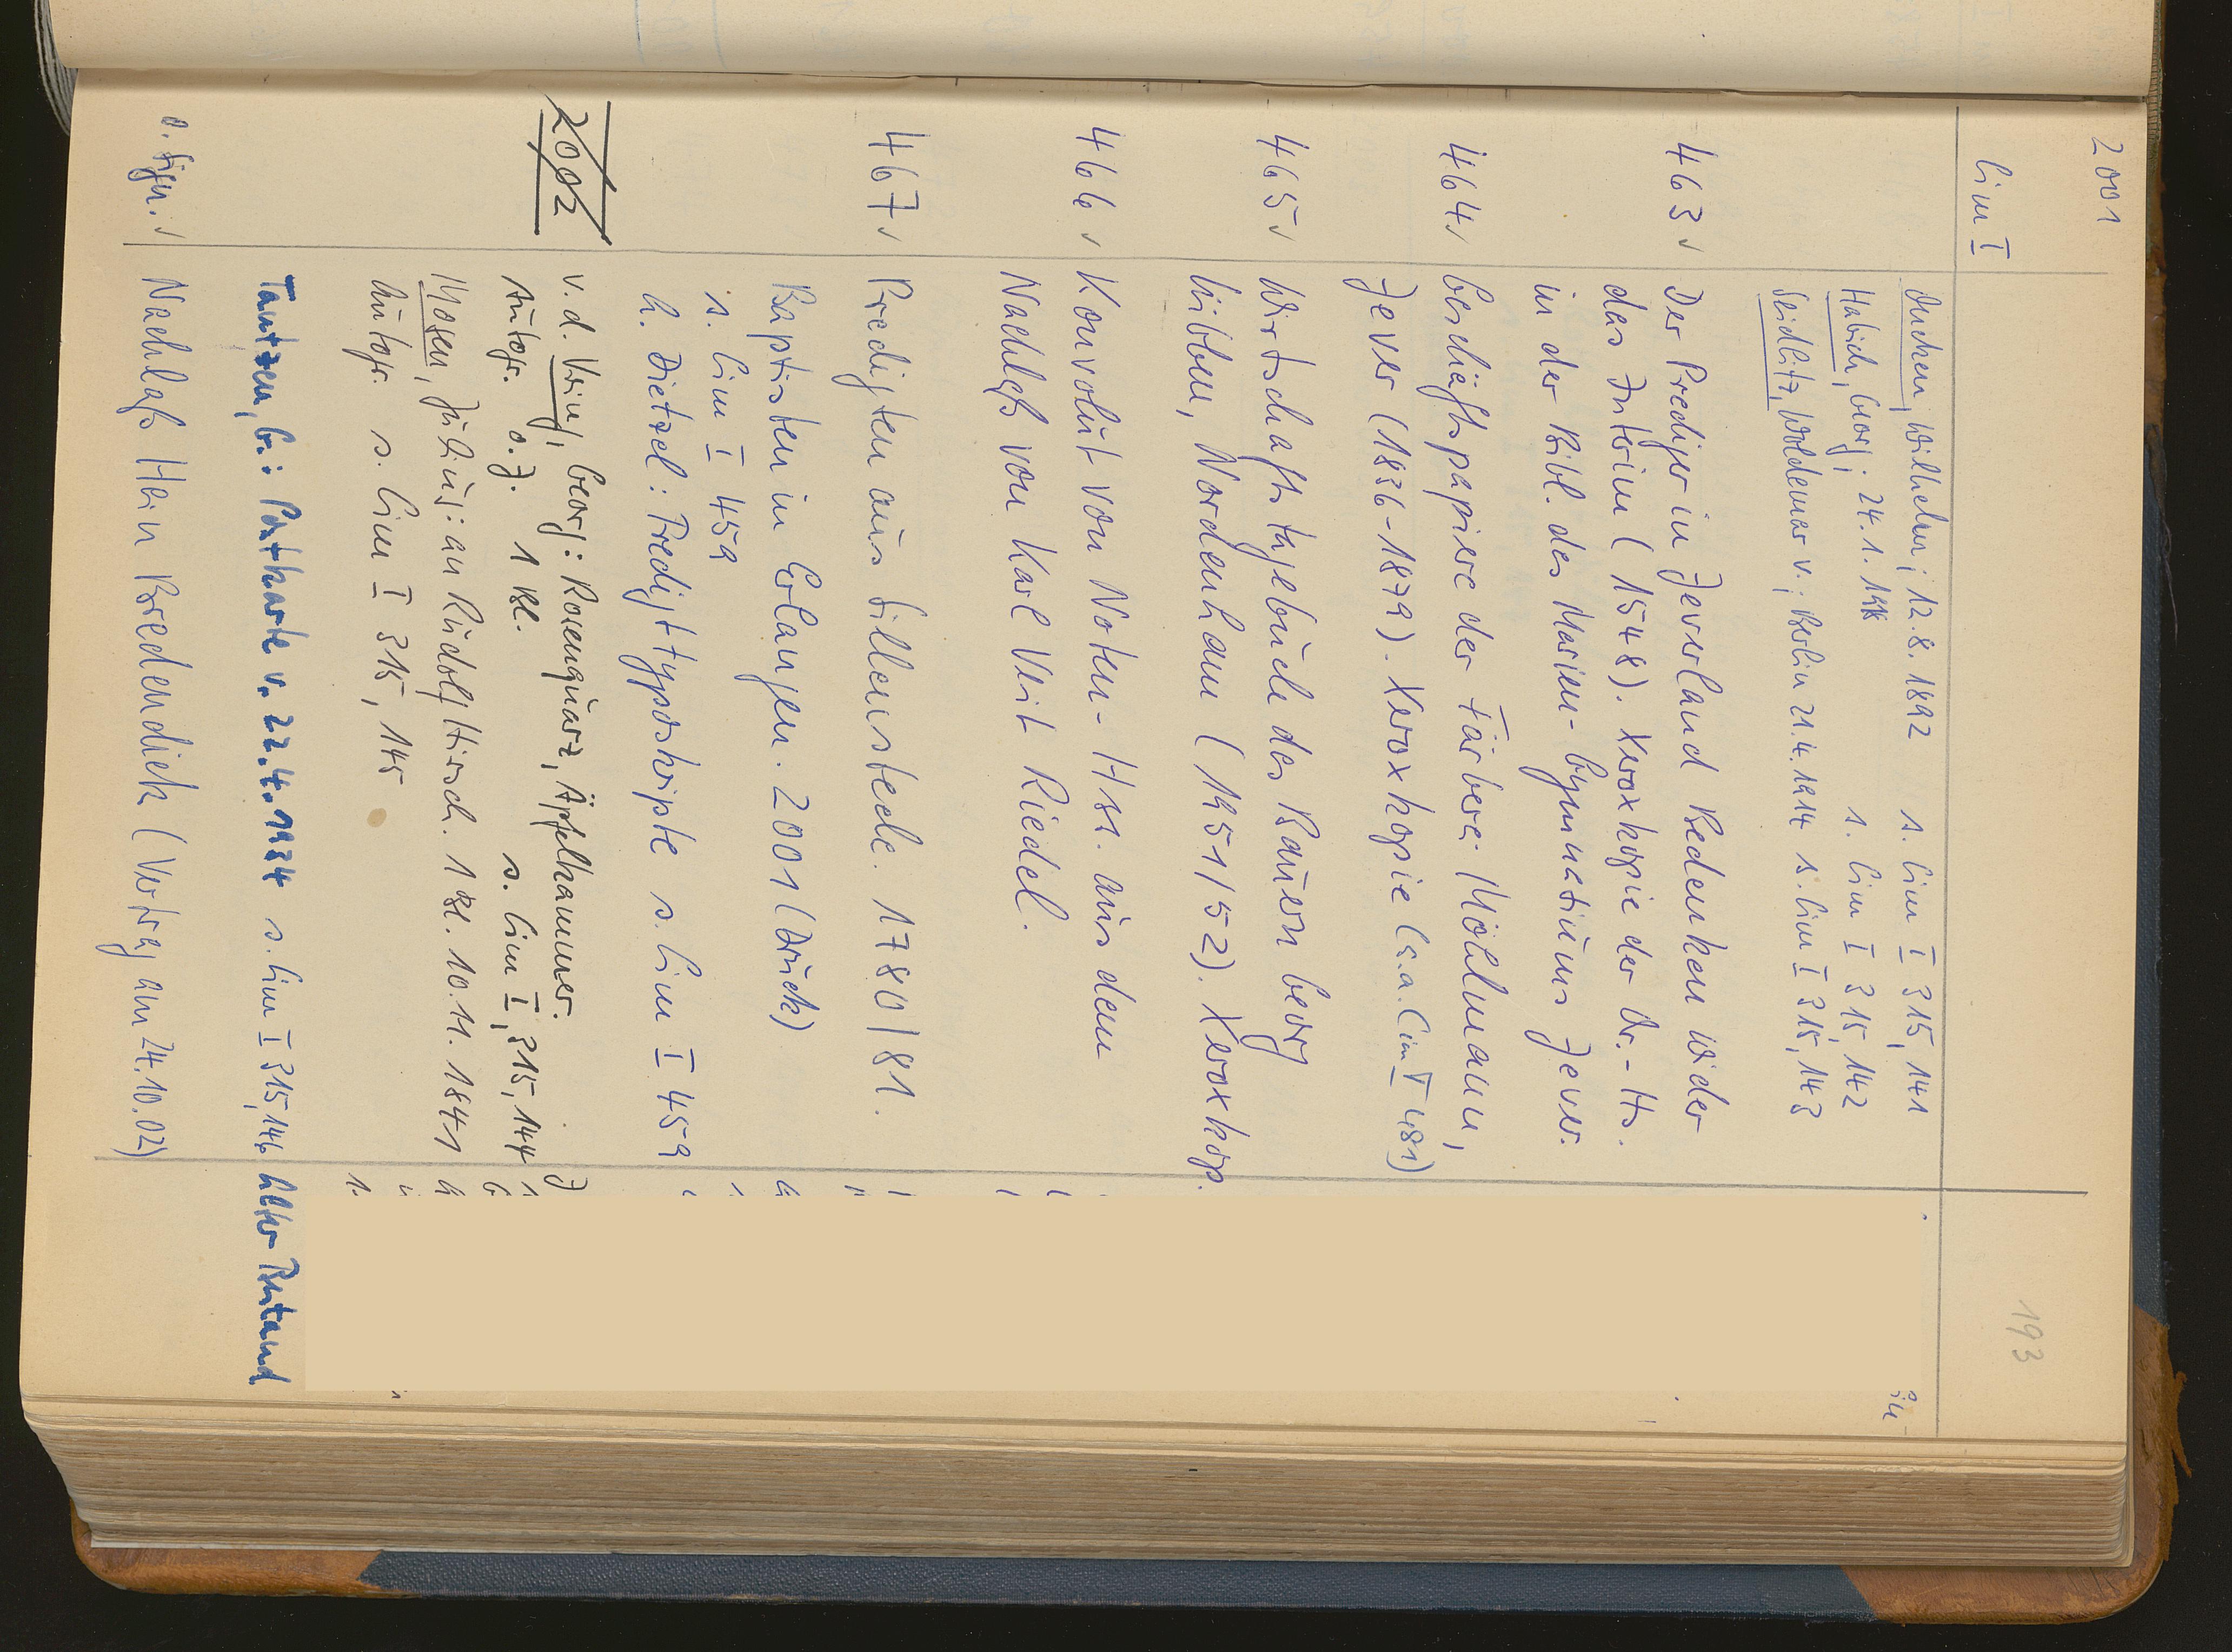 2001
Cim I
193
Oncken, Wilhelm; 12.8.1892 s. Cim I 315, 141
Habich, Georg; 24.1. s. Cim I 315, 142
Seidlitz, Woldemar v.; Berlin 21.4.1914 s. Cim I 315, 143
463 ✓ Der Prediger in Jeverland Bedenken wider
das Interim (1548). Xeroxkopie der Or.-Hs.
in der Bibl. des Marien-Gymnasiums Jever.
464 ✓ Geschäftspapiere der Färberei Möhlmann,
Jever (1836-1879). Xeroxkopie (s.a. Cim I 481)
465 ✓ Wirtschaftstagebuch des Bauern Georg
Lübben, Nordenham (1951/52). Xeroxkop.
466 ✓ Konvolut von Noten-Hss. aus dem
Nachlaß von Karl Veit Riedel.
467 ✓ Predigten aus Sillenstede. 1780/81.
Baptisten in Erlangen. 2001 (Druck)
s. Cim I 459
H. Dietzel: Predigttyposkripte s. Cim I 459
2002
v.d. Vring, Georg: Rosenquarz, Äpfelkammer.
Autogr. o.J. 1 Bl. s. Cim I, 315, 144
Mosen, Julius: an Rudolf Hirsch. 1 Bl. 10.11.1841
Autogr. s. Cim I 315, 145
Tantzen, G.: Postkarte v. 22.4.1934 s. Cim I 315, 146 Alter Bestand
o. Sign. ✓ Nachlaß Hein Bredendiek (Vertrag am 24.10.02)